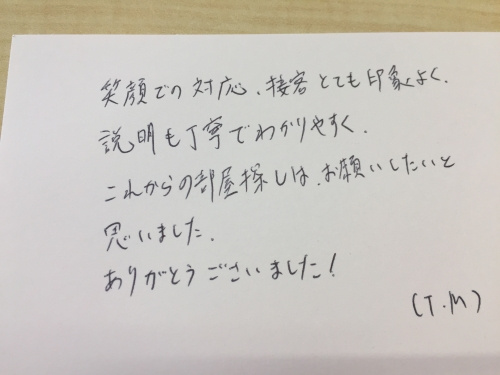 笑顔での対応、接客とても印象よく、
説明も丁寧でわかりやすく、
これからの部屋探しは、お願いしたいと
思いました。
ありがとうございました!
(T.M)